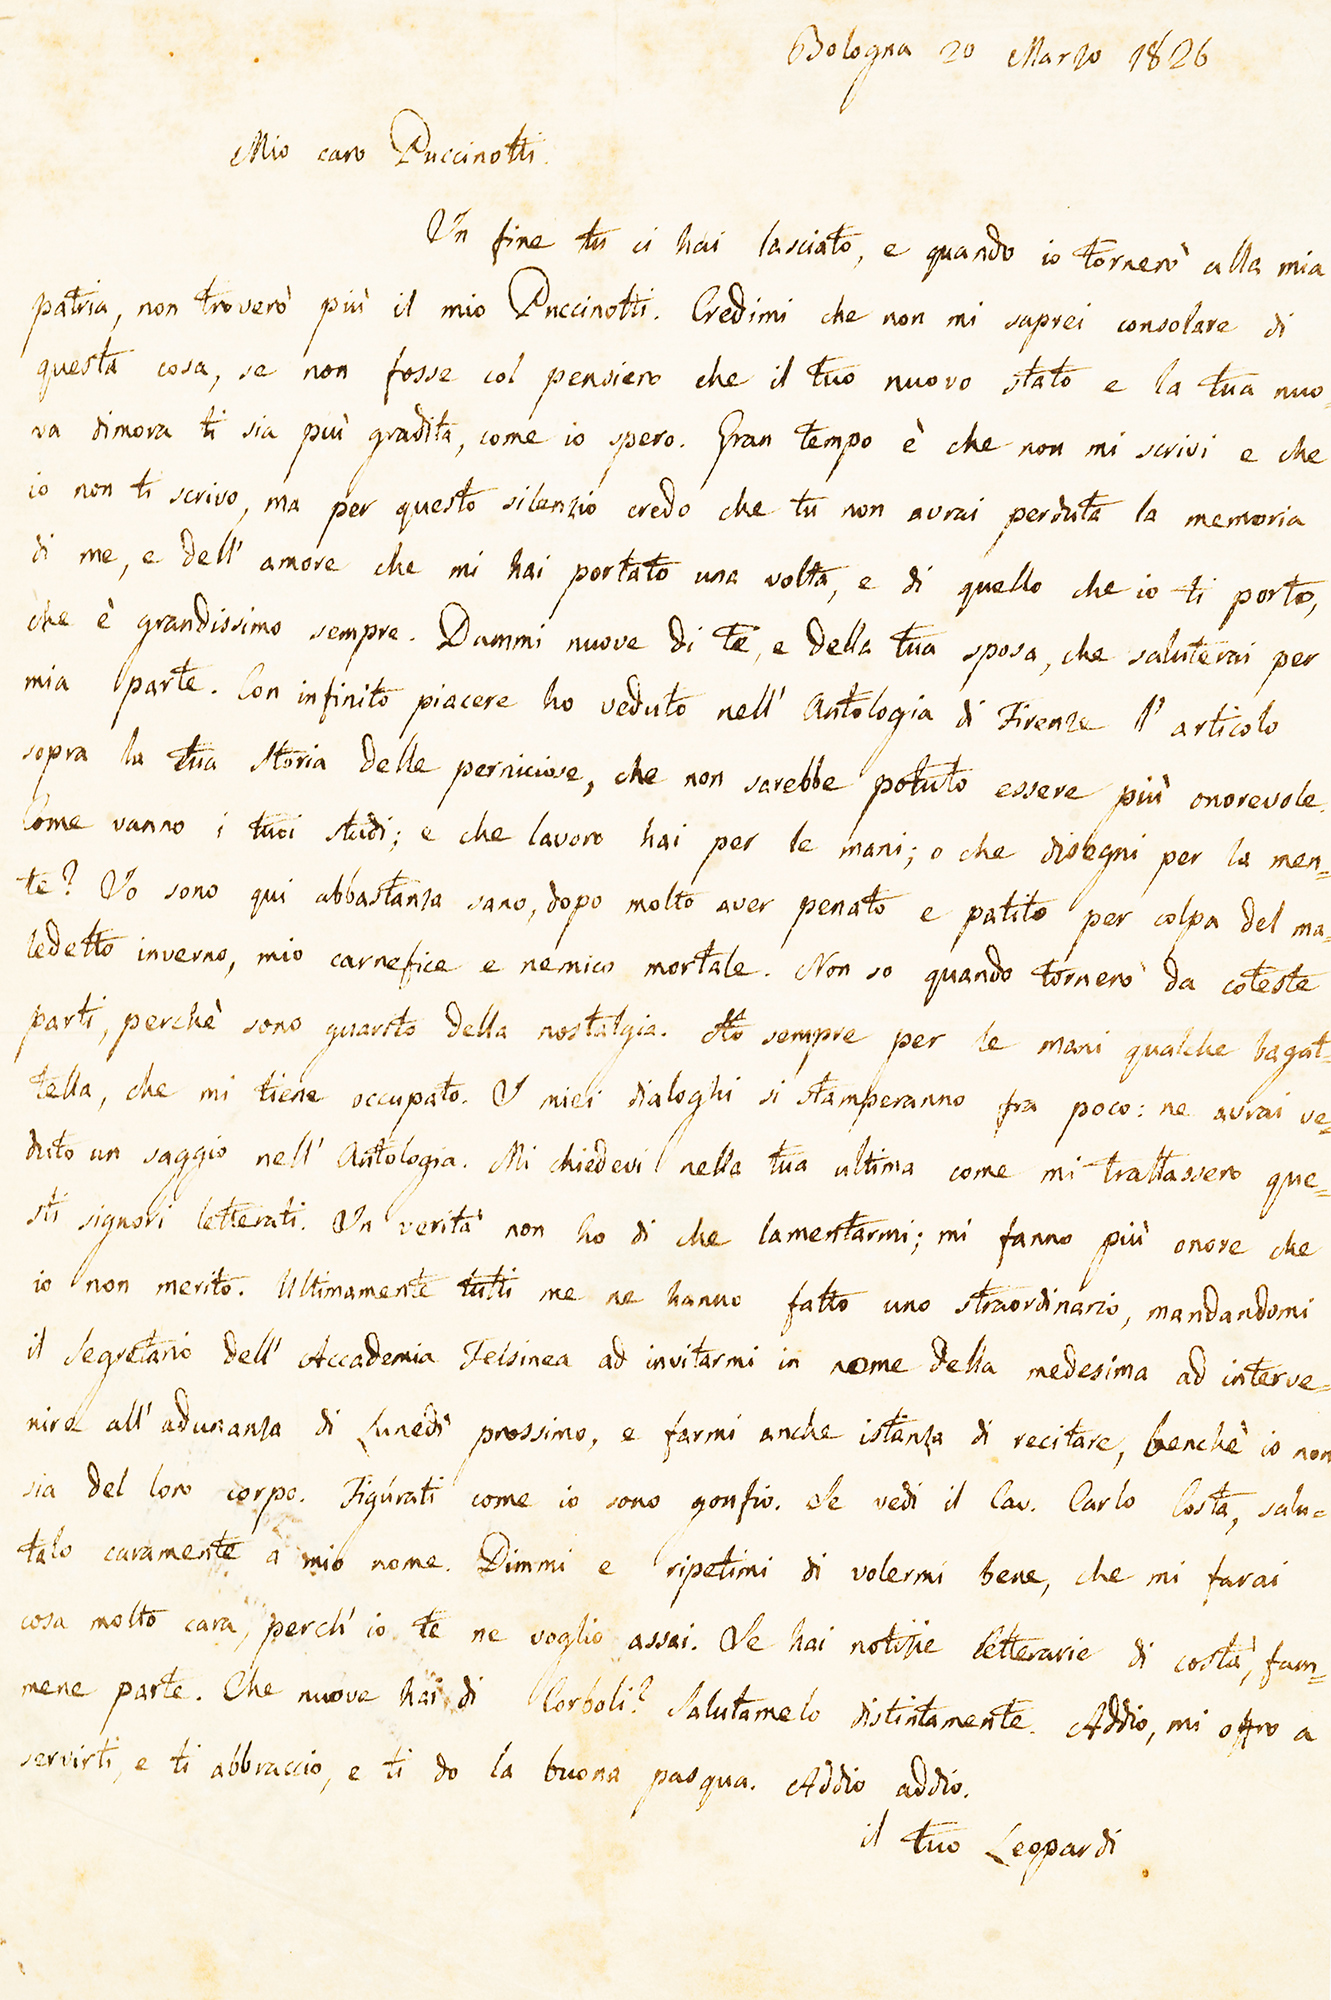 Bologna 20 Marzo 1826
Mio caro Puccinotti.
In fine tu ci hai lasciato, e quando io tornerò alla mia
patria, non troverò più il mio Puccinotti. Credimi che non mi saprei consolare di
questa cosa, se non fosse col pensiero che il tuo nuovo stato e la tua nuo-
va dimora ti sia più gradita, come io spero. Gran tempo è che non mi scrivi e che
io non ti scrivo, ma per questo silenzio credo che tu non avrai perduta la memoria
di me, e dell' amore che mi hai portato una volta, e di quello che io ti porto,
che è grandissimo sempre. Dammi nuove di te, e della tua sposa, che saluterai per
mia parte. Con infinito piacere ho veduto nell' Antologia di Firenze l' articolo
sopra la tua Storia delle perniciose, che non sarebbe potuto essere più onorevole.
Come vanno i tuoi studi; e che lavoro hai per le mani; o che disegni per la men-
te? Io sono qui abbastanza sano, dopo molto aver penato e patito per colpa del ma-
ledetto inverno, mio carnefice e nemico mortale. Non so quando tornerò da coteste
parti, perchè sono guarito della nostalgia. Ho sempre per le mani qualche bagat-
tella, che mi tiene occupato. I miei dialoghi si stamperanno fra poco: ne avrai ve-
duto un saggio nell' Antologia. Mi chiedevi nella tua ultima come mi trattassero que-
sti signori letterati. In verità non ho di che lamentarmi; mi fanno più onore che
io non merito. Ultimamente tutti me ne hanno fatto uno straordinario, mandandomi
il Segretario dell' Accademia Felsinea ad invitarmi in nome della medesima ad interve-
nire all' adunanza di Lunedì prossimo, e farmi anche istanza di recitare, benchè io non
sia del loro corpo. Figúrati come io sono gonfio. Se vedi il Cav. Carlo Costa, salu-
talo caramente a mio nome. Dimmi e ripetimi di volermi bene, che mi farai
cosa molto cara, perch' io te ne voglio assai. Se hai notizie letterarie di costà, fam-
mene parte. Che nuove hai di Corboli? Salutamelo distintamente. Addio, mi offro a
servirti, e ti abbraccio, e ti do la buona pasqua. Addio addio.
il tuo Leopardi